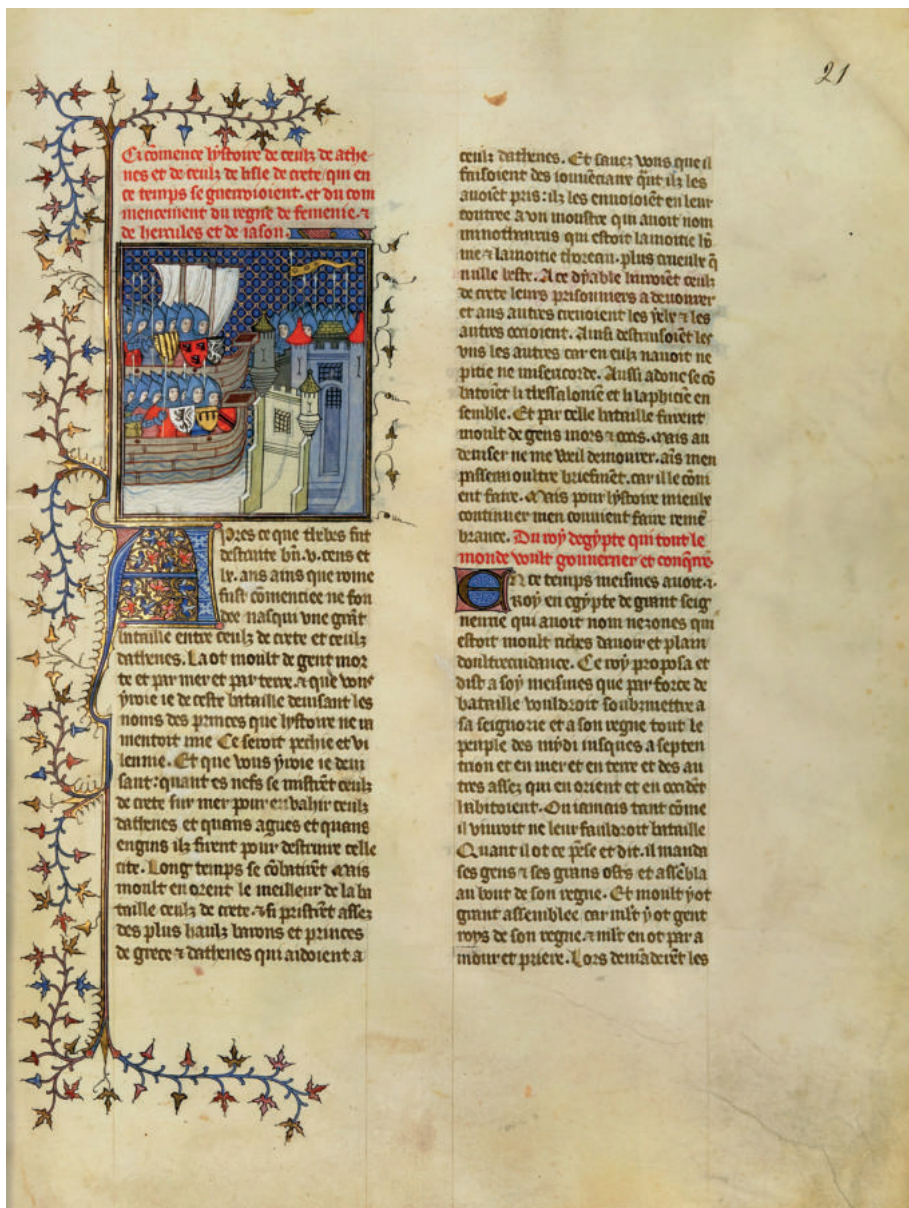 21
Ci cōmence lystoire de ceulz de athe-
nes et de ceulz de lisle de crete qui en
ce temps se guerroioient. et du com
mencement du regne de femenie. ⁊
de hercules et de iason.
Apres ce que thebes fut
destruite bn̄. v. cens et
lx. ans ains que rome
fust cōmenciee ne fon
dee nasqui vne grāt
bataille entre ceulz de crete et ceulz
dathenes. La ot moult de gent mor
te et par mer et par terre. ⁊ que vous
yroie ie de ceste bataille deuisant les
noms des princes que lystoire ne m
mentoit mie Ce seroit pechie et vi
lennie. Et que vous yroie ie deui
sant: quant es nefs se mistrēt ceulz
de crete sur mer pour enuahir ceulz
dathenes et quans agues et quans
engins ilz firent pour destruire celle
cite. Long temps se cōbatirēt Mais
moult en orent le meilleur de la ba
taille ceulz de crete. ⁊ si pristrēt assez
des plus haulz barons et princes
de grece ⁊ dathenes qui aidoient a
ceulz dathenes. Et sauez vous que il
faisoient des iouuēciaux qn̄t ilz les
auoiēt pris: ilz les enuoioiēt en leur
contree a vn monstre qui auoit nom
minothaurus qui estoit la moitie hō
me ⁊ la moitie thoreau. plus crueule q̄
nulle beste. A ce dyable liuroiēt ceulz
de crete leurs prisonniers a deuourer
et aus autres creuoient les yelx ⁊ les
autres occioient. Ainsi destruisoiēt les
vns les autres car en eulz nauoit ne
pitie ne misericorde. Aussi adonc se cō
batoiēt li thessaloniē et li laphiciē en
semble. Et par celle bataille furent
moult de gens mors ⁊ occis. Mais au
deuiser ne me vueil demourer. ais men
passerai oultre briefmēt. car il le cōui
ent faire. Mais pour lystoire mieulx
continuer men conuient faire remē
brance. Du roy degypte qui tout le
monde voult gouuerner et conq̄rre.
En ce temps meismes auoit .i.
Roy en egypte de grant seig
neurie qui auoit nom nezones qui
estoit moult riches dauoir et plain
doultrecuidance. Ce roy proposa et
dist a soy meismes que par force de
bataille vouldroit soubzmettre a
sa seignorie et a son regne tout le
peuple des mydi iusques a septen
trion et en mer et en terre et des au
tres assez qui en orient et en occidēt
habitoient. On iamais tant cōme
il viuroit ne leur fauldroit bataille
Quant il ot ce pēse et dit. il manda
ses gens ⁊ ses grans osts et assēbla
au bout de son regne. Et moult y ot
grant assemblee car mlt̄ y ot gent
roys de son regne. ⁊ mlt̄ en ot par a
mour et priere. Lors demāderēt les